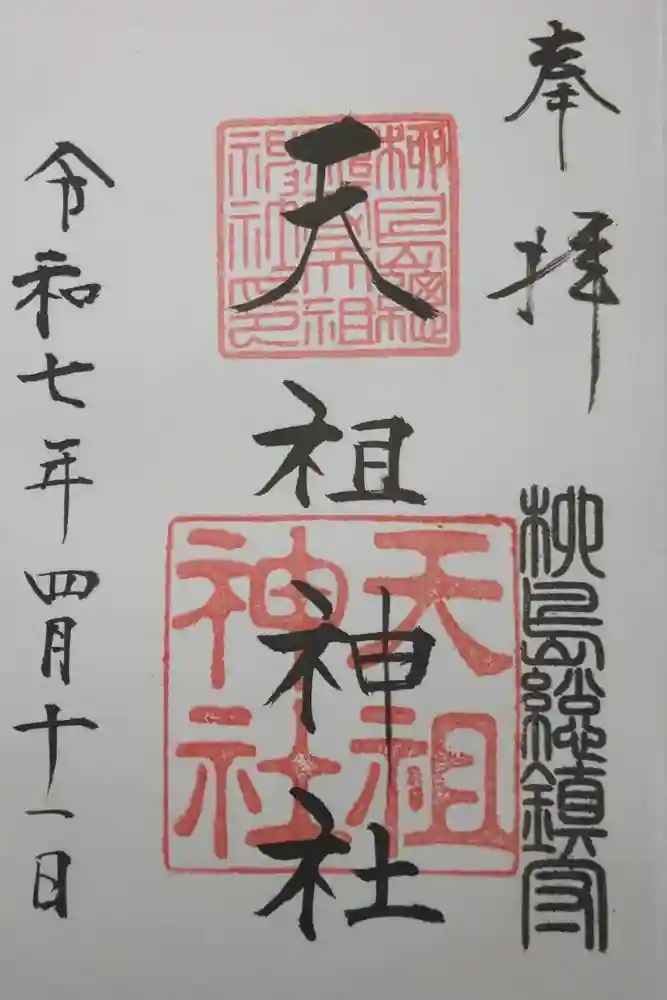 奉拝
柳島総鎮守
天祖神社
柳島総
鎮守天祖
神社印
天祖
神社
令和七年四月十一日